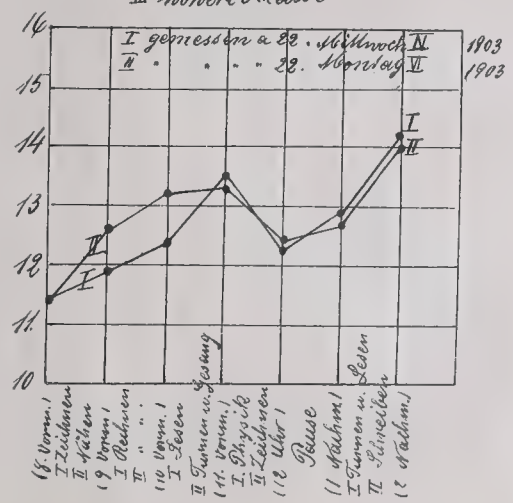 16
I gemessen a 22. Mittwoch IV 1903
II " " " " 22. Montag VI 1903
15
14
I
II
13
II
12
I
11
10
(8. Vorm.)
I Zeichnen
II Nähen
(9 Vorm)
I Rechnen
II " "
(10 Vorm.)
I Lesen
II Turnen u. Gesang
(11. Vorm.)
I. Physik
II Zeichnen
(12 Uhr)
Pause
(1 Nachm.)
I Turnen u. Lesen
II Schreiben
(2 Nachm.)